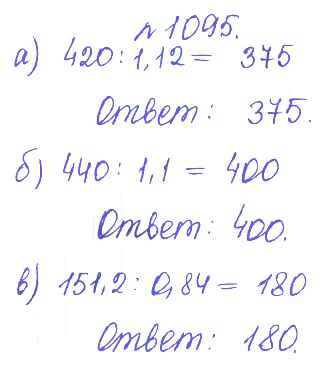 № 1095.
а) 420 : 1,12 = 375
Ответ: 375.
б) 440 : 1,1 = 400
Ответ: 400.
в) 151,2 : 0,84 = 180
Ответ: 180.